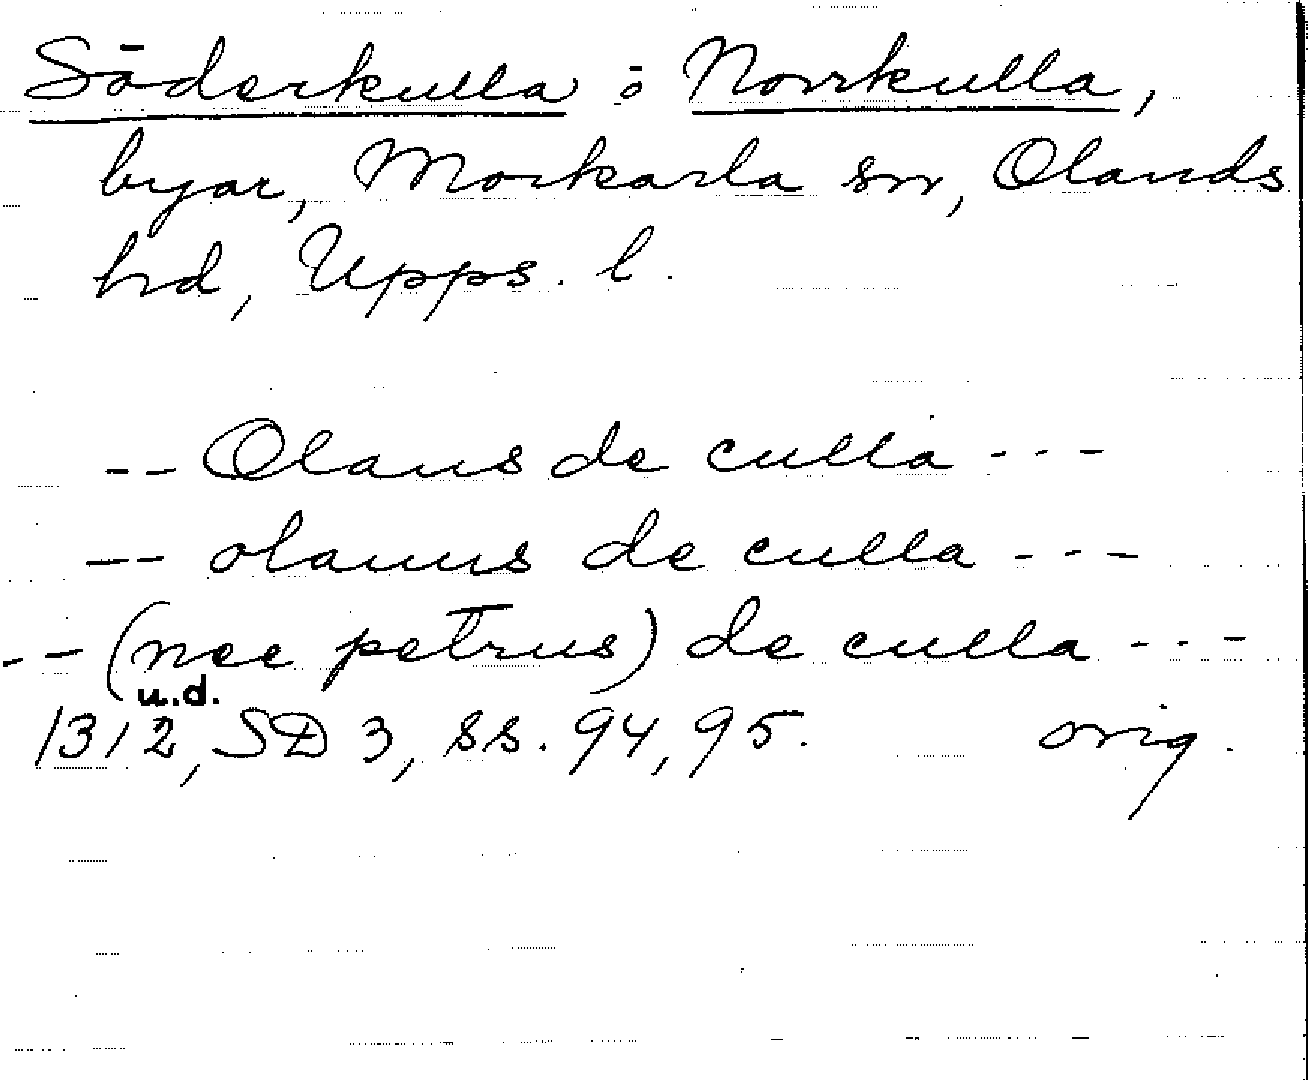 Söderkulla o Norrkulla,
byar, Morkarla sn, Olands
hd, Upps. l.
-- Olaus de culla ---
-- olauus de culla ---
-- (nec petrus) de culla ---
u.d.
1312, SD 3, ss. 94, 95. orig.